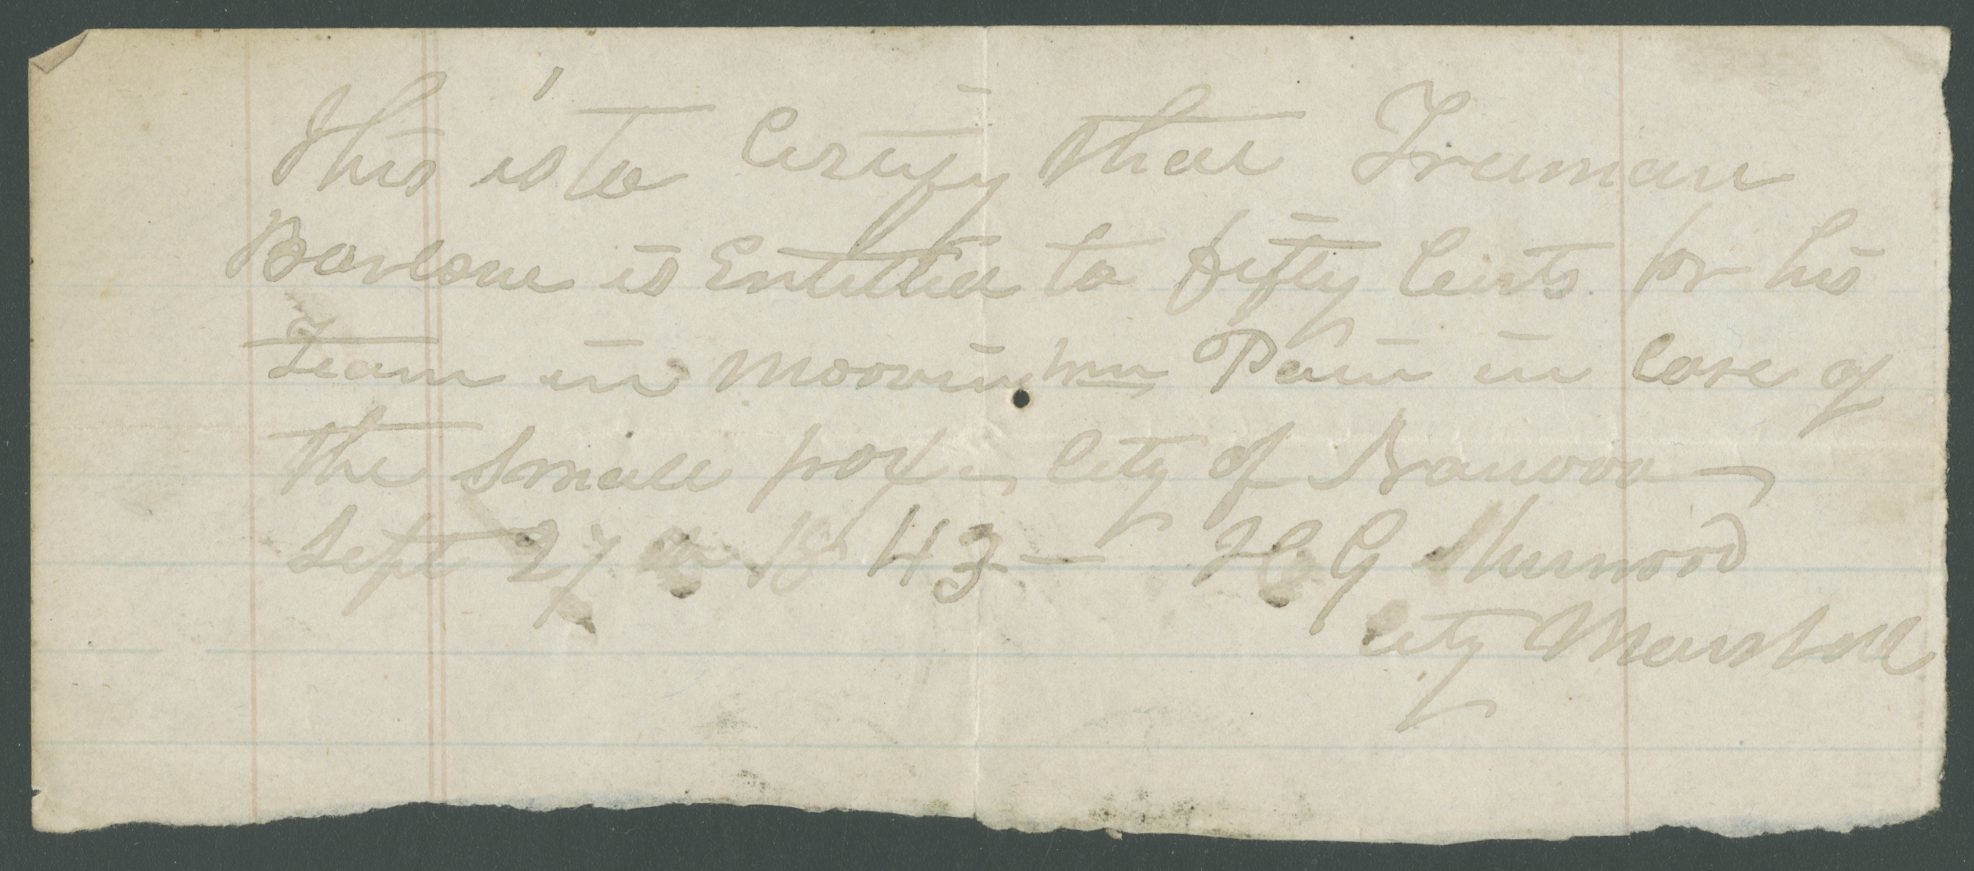 This is to Certify that Truman
Barlone is Entitled to fifty Cents for his
Team in Mooving Wm Pain in Case of
the Small pox — City of Nauvoo —
Sept 27th 1843 — H G Sherwood
City Marshall